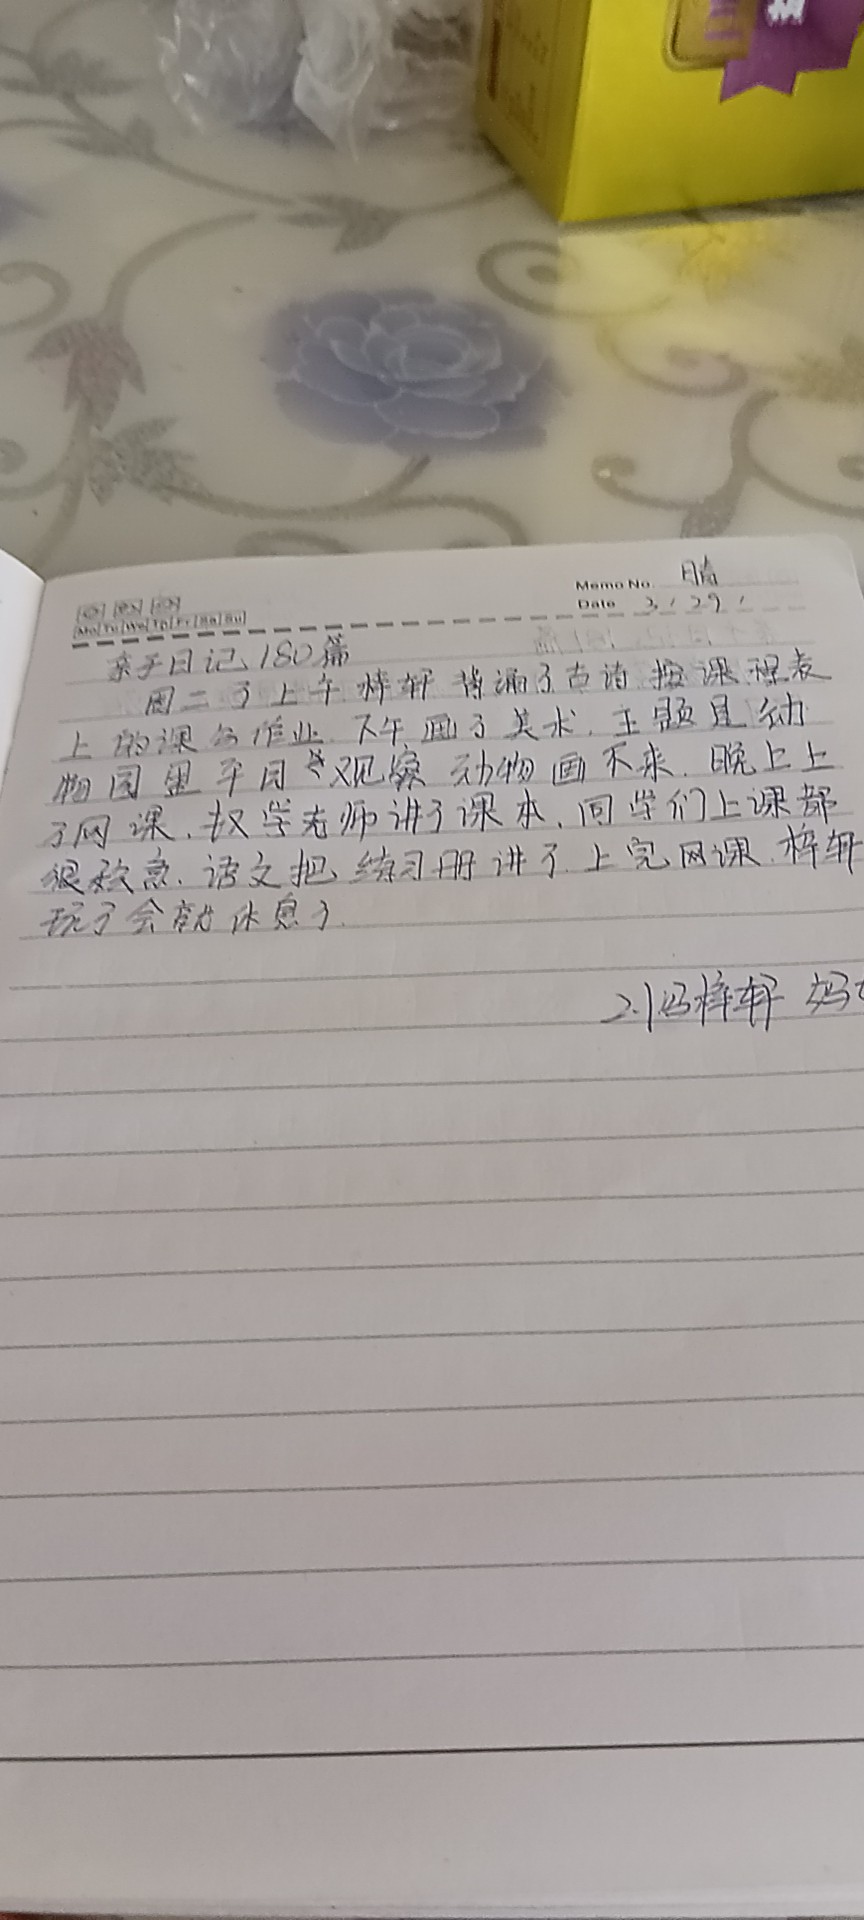 Memo No. 晴
Mo Tu We Th Fr Sa Su
Date 3 / 29 /
亲子日记、180篇
周二了上午梓轩背诵了古诗按课程表
上的课名作业.下午画了美术.主题是动
物园里平日观察动物画下来.晚上上
了网课.数学老师讲了课本、同学们上课都
很积急.语文把练习册讲了.上完网课.梓轩
玩了会就休息了.
2.1冯梓轩 妈